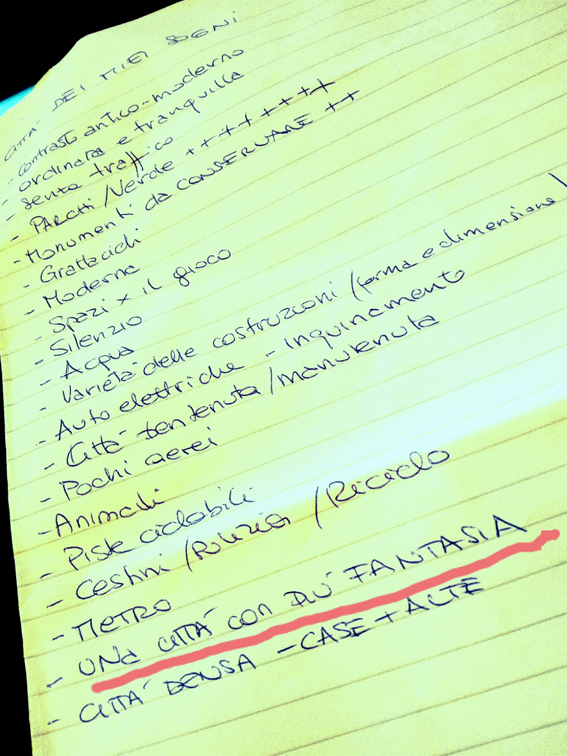 CITTÀ DEI MIEI SOGNI
- contrasti antico-moderno
- ordinata e tranquilla
- senza traffico
- PARCHI/Verde ++++++++
- Monumenti da CONSERVARE ++
- Grattacieli
- Moderna
- Spazi x il gioco
- Silenzio
- Acqua
- Varietà delle costruzioni (forma e dimensione)
- Auto elettriche - inquinamento
- Città ben tenuta/manutenuta
- Pochi aerei
- Animali
- Piste ciclabili
- Cestini/Pulizia/Riciclo
- METRO
- UNA CITTÀ CON PIÙ FANTASIA
- CITTÀ DENSA - CASE + ALTE